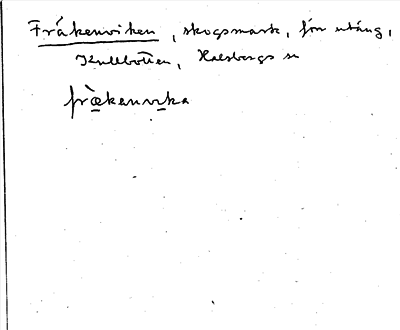 Fräkenviken, skogsmark, förr utäng,
Kullbotten, Halsbergs sn
fræ̀kenvika